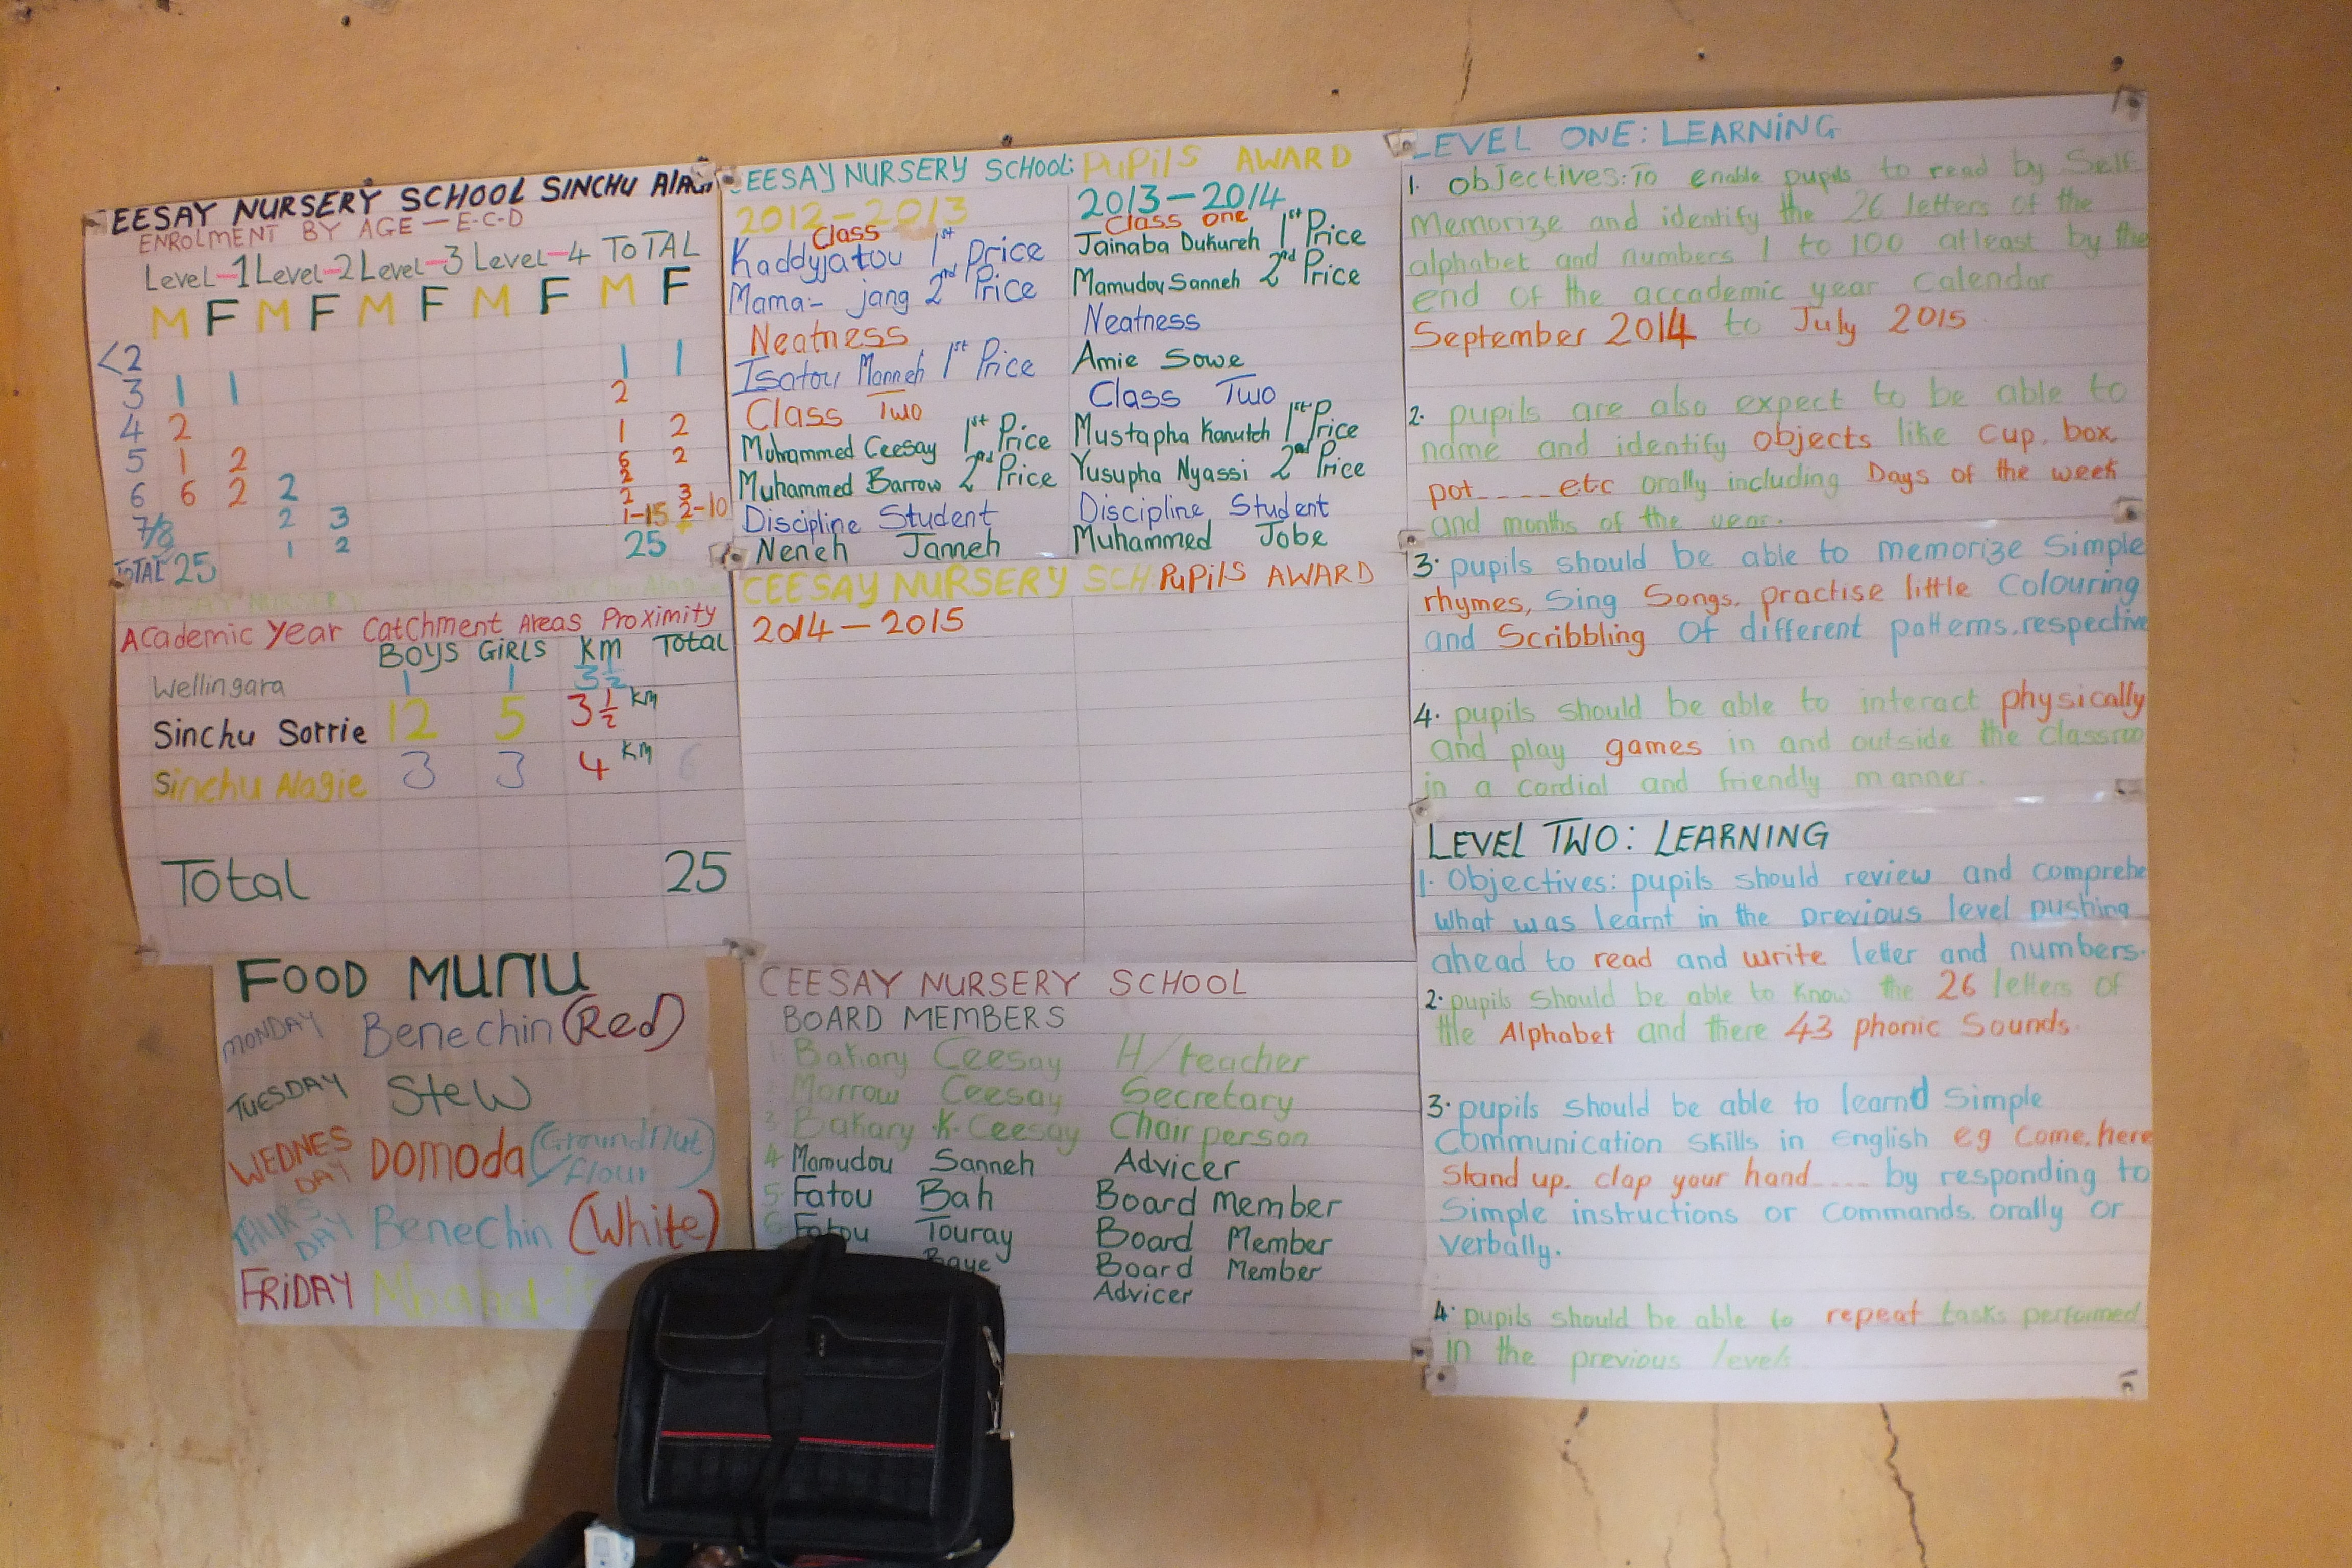 EESAY NURSERY SCHOOL SINCHU
ENROLMENT BY AGE — E-C-D
Level-1 Level-2 Level-3 Level-4 TOTAL
M F M F M F M F M F
<2 1 1
3 1 1 2
4 2 1 2
5 1 2 6 2
6 6 2 2 2 2 3
7/8 2 3 1-15 2-10
TOTAL 25 1 2 25
Academic Year Catchment Areas Proximity
BOYS GIRLS KM Total
Wellingara 1 1 3 1/2
Sinchu Sorrie 12 5 3 1/2 KM
Sinchu Alagie 3 3 4 KM 6
Total 25
FOOD MUNU
MONDAY Benechin (Red)
TUESDAY Stew
WEDNES DOMODA (Groundnut
DAY flour)
THURS
DAY Benechin (White)
FRIDAY
EESAY NURSERY SCHOOL: PUPILS AWARD
2012-2013
Class
Kaddyjatou 1st Price
Mama- jang 2nd Price
Neatness
Isatou Manneh 1st Price
Class Two
Muhammed Ceesay 1st Price
Muhammed Barrow 2nd Price
Discipline Student
Neneh Janneh
2013-2014
Class one
Jainaba Dukureh 1st Price
Mamudou Sanneh 2nd Price
Neatness
Amie Sowe
Class Two
Mustapha Kanuteh 1st Price
Yusupha Nyassi 2nd Price
Discipline Student
Muhammed Jobe
CEESAY NURSERY SCH: PUPILS AWARD
2014-2015
CEESAY NURSERY SCHOOL
BOARD MEMBERS
1 Bakary Ceesay H/teacher
Morrow Ceesay Secretary
3 Bakary K. Ceesay Chairperson
4 Mamudou Sanneh Advicer
5. Fatou Bah Board Member
6 Fatou Touray Board Member
Baye Board Member
Advicer
LEVEL ONE: LEARNING
1. Objectives: To enable pupils to read by Self
Memorize and identify the 26 letters of the
alphabet and numbers 1 to 100 atleast by the
end of the accademic year calendar
September 2014 to July 2015
2. pupils are also expect to be able to
name and identify objects like cup, box,
pot....etc orally including Days of the week
and months of the year.
3. pupils should be able to memorize Simple
rhymes, Sing Songs, practise little Colouring
and Scribbling of different patterns, respective
4. pupils should be able to interact physically
and play games in and outside the classroo
in a cordial and friendly manner.
LEVEL TWO: LEARNING
1. Objectives: pupils should review and comprehe
what was learnt in the previous level pushing
ahead to read and write letter and numbers.
2. pupils should be able to know the 26 letters of
the Alphabet and there 43 phonic Sounds.
3. pupils should be able to learnd Simple
communication skills in English eg Come, here
Stand up, clap your hand.... by responding to
Simple instructions or commands, orally or
verbally.
4. pupils should be able to repeat tasks performed
in the previous levels